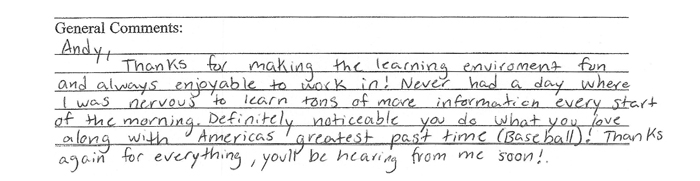 General Comments:
Andy,
Thanks for making the learning enviroment fun
and always enjoyable to work in! Never had a day where
I was nervous to learn tons of more information every start
of the morning. Definitely noticeable you do what you love
along with Americas greatest past time (Baseball)! Thanks
again for everything, you'll be hearing from me soon!.